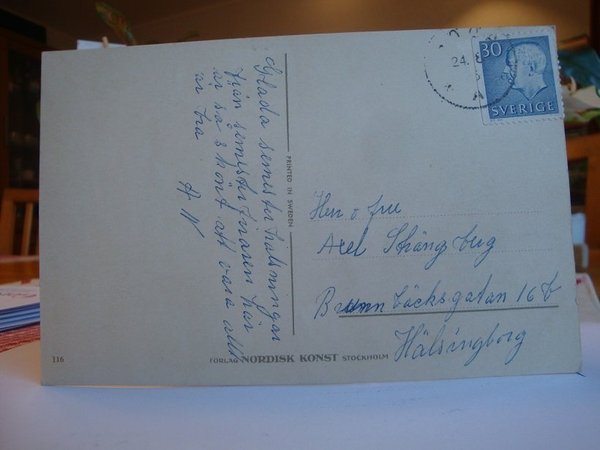 Glada semesterhälsningar
från semesterfiraren här
är så skönt att vara allt
är bra.
A N
PRINTED IN SWEDEN
24.
30
SVERIGE
Herr o fru
Axel Stångberg
Brunnbäcksgatan 16 b
Hälsingborg
116
FÖRLAG NORDISK KONST STOCKHOLM